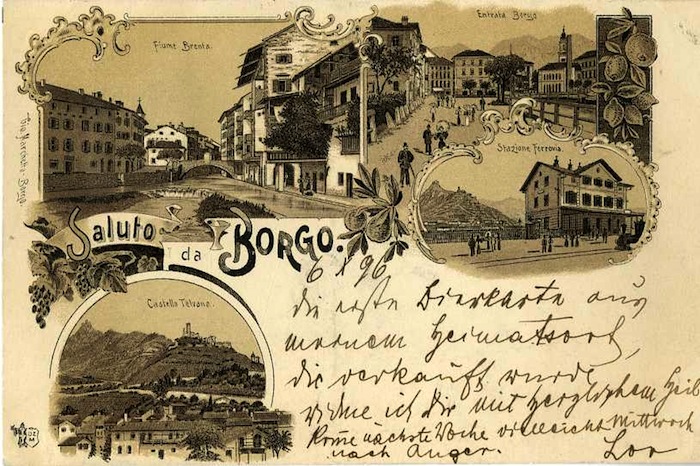 Fiume Brenta.
Entrata Borgo
Stazione Ferrovia.
Gio. Marchetto - Borgo.
Saluto
da BORGO.
Castello Telvana.
6 X 96
die erste Bierkarte aus
meinem Heimatsort,
die verkauft wurde
widme ich Dir mit herzlichem Heil
Komme nächste Woche vielleicht Mittwoch
nach Anger.